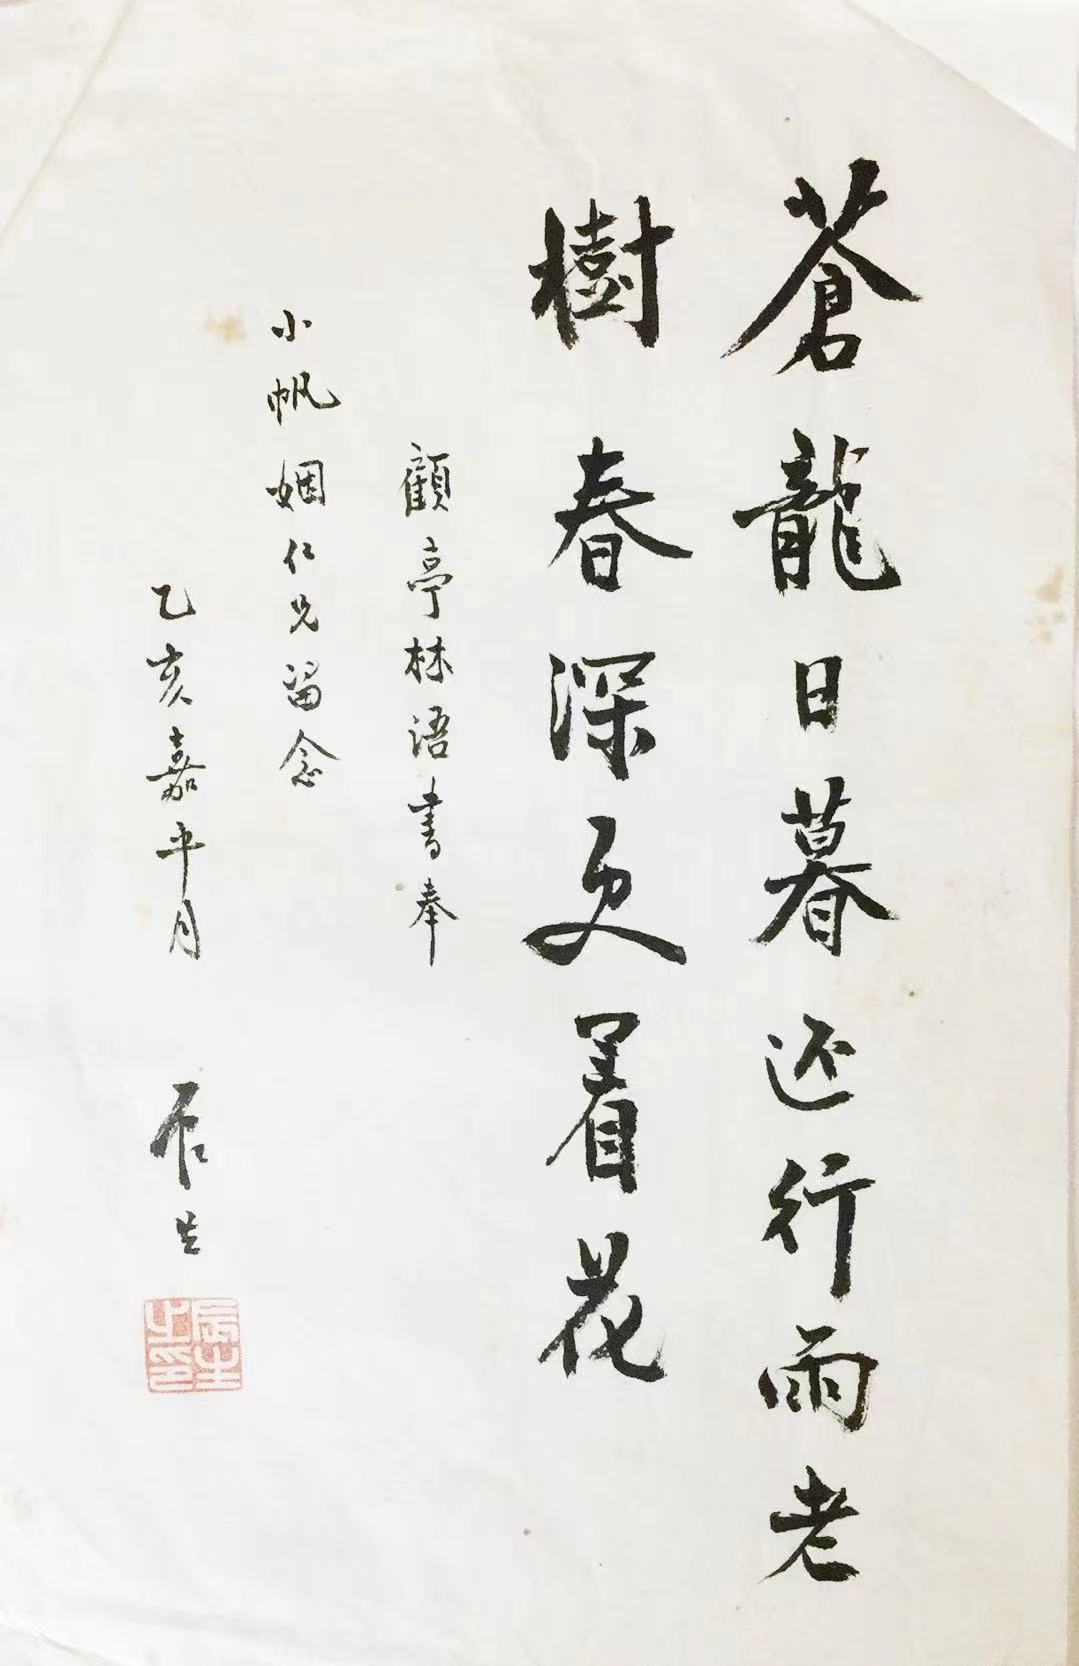 蒼龍日暮还行雨老
樹春深更著花
顧亭林語書奉
小帆姻仁兄留念
乙亥嘉平月 辰生
辰生之印